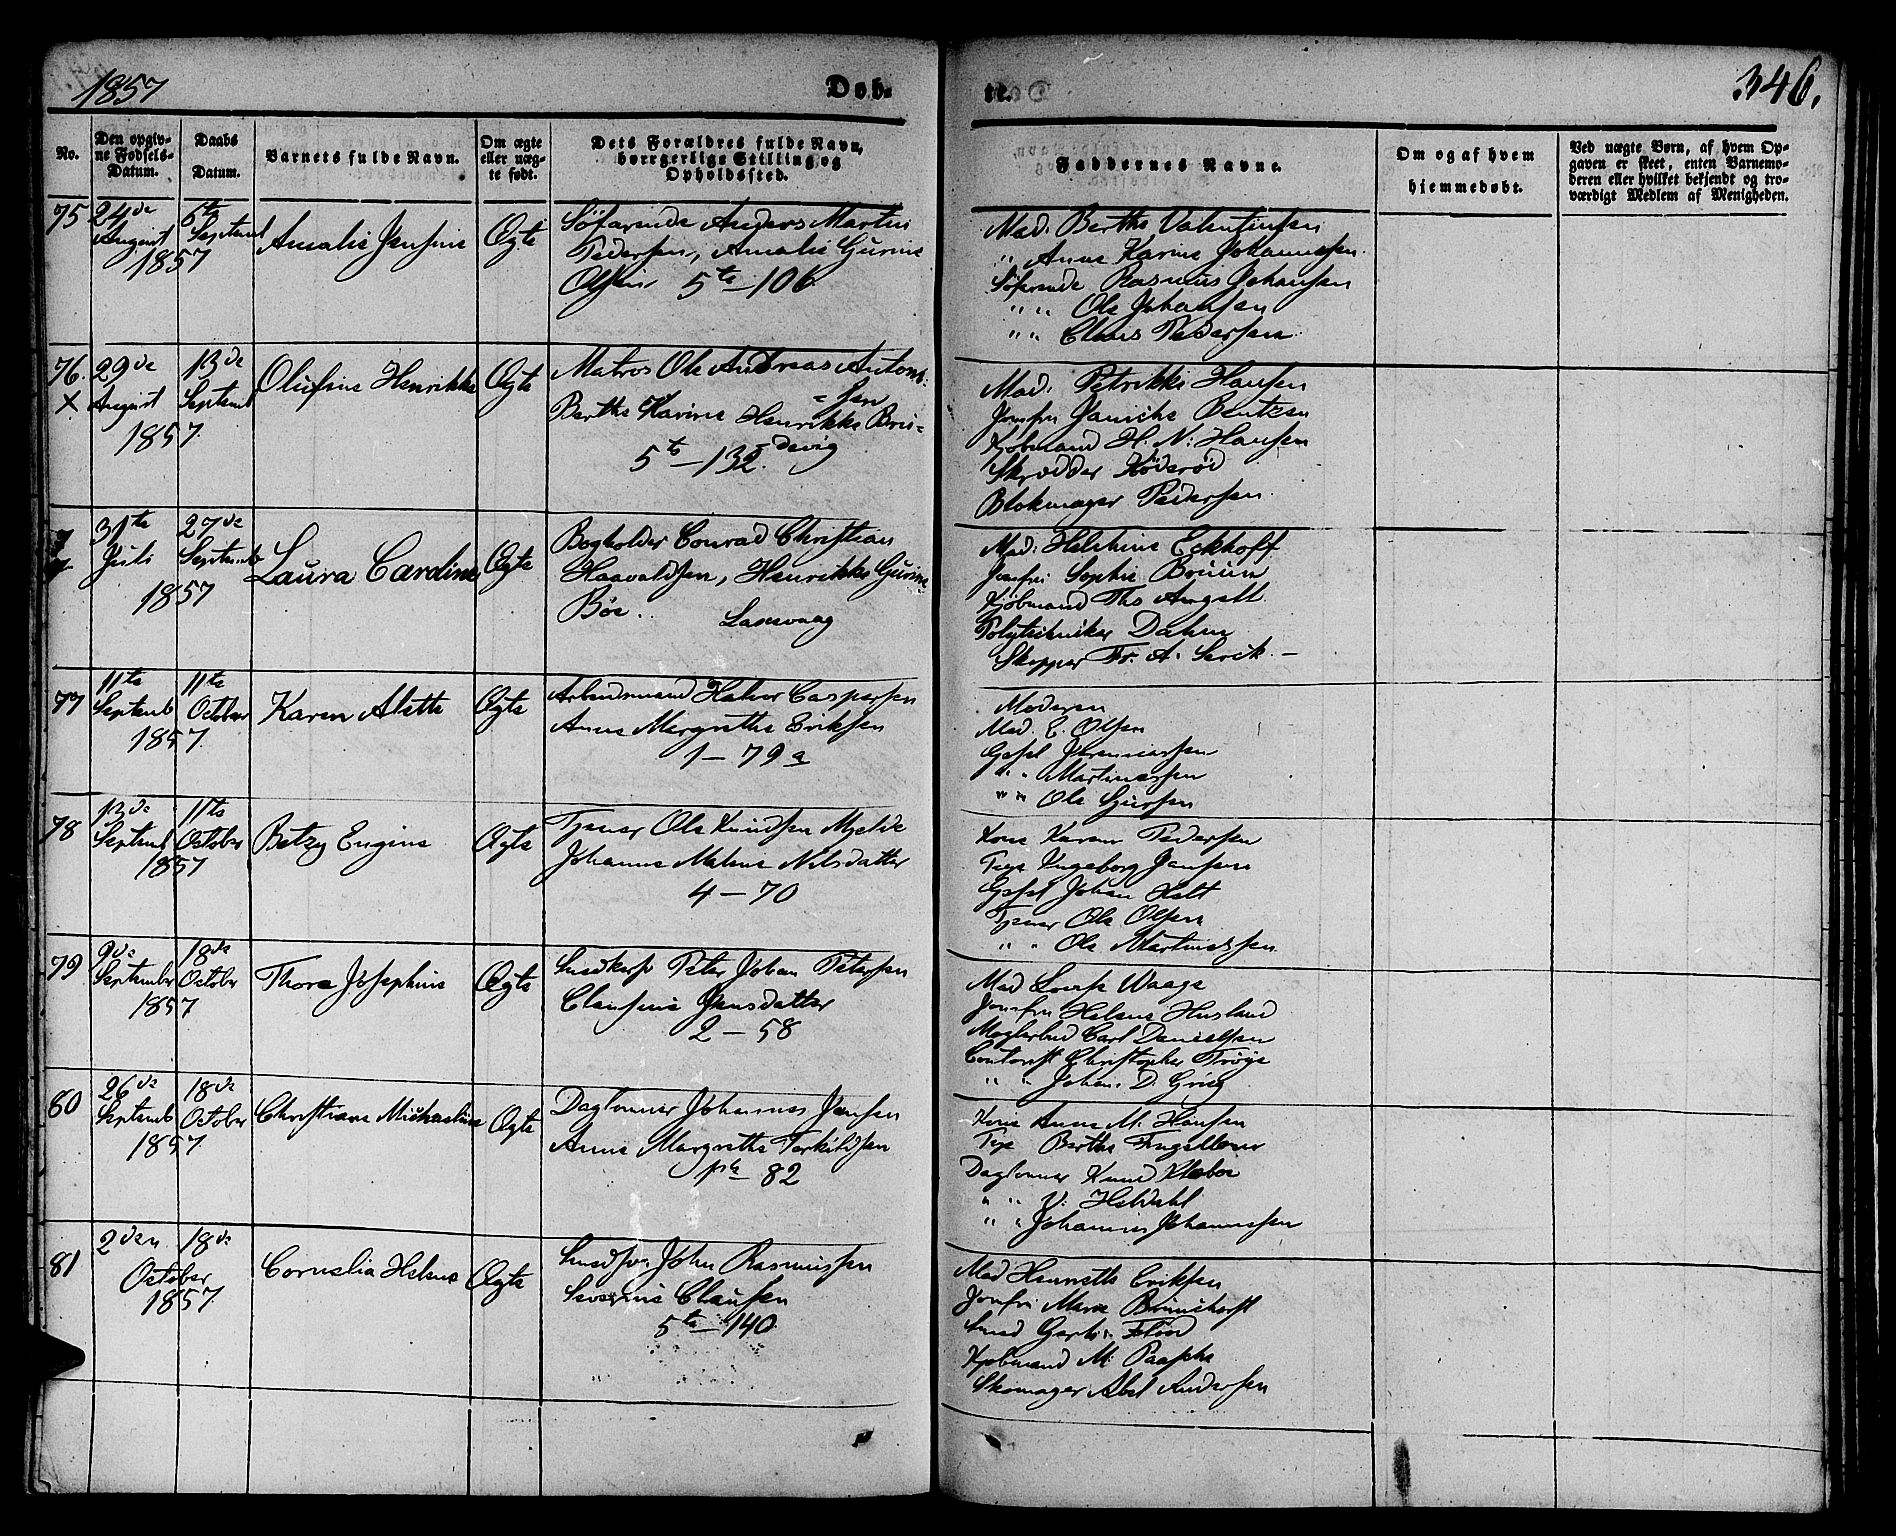 1857
Døb-
te.
346.
No.
Den opgiv-
ne Fødsels-
Datum.
Daabs
Datum.
Barnets fulde Navn.
Om ægte
eller uæg-
te født.
Dets Forældres fulde Navn,
borgerlige Stilling og
Opholdssted.
Faddernes Navne.
Om og af hvem
hjemmedøbt.
Ved uægte Børn, af hvem Op-
gaven er skeet, enten Barnemo-
deren eller hvilket bekjendt og tro-
værdigt Medlem af Menigheden.
75
24de
August
1857
6te
Septemb
Amalie Jensine
Ægte
Søfarende Anders Martin
Pedersen, Amalie Gurine
Olsen 5te – 106
Mad. Berthe Valentinsen
" Anne Karine Johannessen
Søfarende Rasmus Johansen
" " Ole Johansen
" " Claus Pedersen
76.
X
29de
August
1857
13de
Septemb
Olufine Henrikke
Ægte
Matros Ole Andreas Anton-
=sen
Berthe Karine Henrikke Bru-
devig
5te – 132.
Mad. Petrikke Hansen
Jomfru Janiche Bentzen
Kjøbmand H. N. Hansen
Skrædder
Blokmager Pedersen
31te
Juli
1857
27de
Septemb
Laura Cardine
Ægte
Bogholder Conrad Christian
Haavaldsen, Henrikke Gurine
Bøe. Laxevaag
Mad. Helshine Eckhoff
Jomfru Sophie Bruun
Kjøbmand Ths Angell
Polytechniker Dahm
Skipper Fr. A.
77
11te
Septemb
1857
11te
October
Karen Alette
Ægte
Arbeidsmand Halvor Caspersen
Anne Margrethe Eriksen
1 – 79 a
Moderen
Mad. E. Olsen
Gesel Jeremiassen
" " Martinussen
" " Ole
78
13de
Septemb
1857
11te
October
Betzy Engine
Ægte
Tjener Ole Knudsen Mjelde
Johanne Malene Nilsdatter
4 – 70
Kone Karen Pedersen
Pige Ingeborg Jansen
Gesel Johan Helt
Tjener Ole Olsen
" " Ole Martinussen
79
9de
September
1857
18de
October
Thora Josephine
Ægte
Peter Johan Petersen
Clausine Jensdatter
2 – 58
Mad Lovise Waage
Jomfru Helene Husland
Mæglerbud Carl Danielsen
Contorist Christopher Trøye
" " Johan D. Grieg
80
26de
Septemb
1857
18de
October
Christiane Michaeline
Ægte
Daglønner Johannes Jansen
Anne Margrethe Terkildsen
82
Kone Anne M. Hansen
Pige Berthe
Daglønner Knud Kleboe
" " V. Heldahl
" " Johannes Johannessen
81
2den
October
1857
18de
Cornelia Helene
Ægte
John Rasmussen
Severine Clausen
5te – 140
Mad Henriette Eriksen
Jomfru Marie Brunchorst
Smed
Kjøbmand M. Paasche
Skomager Abel Andersen